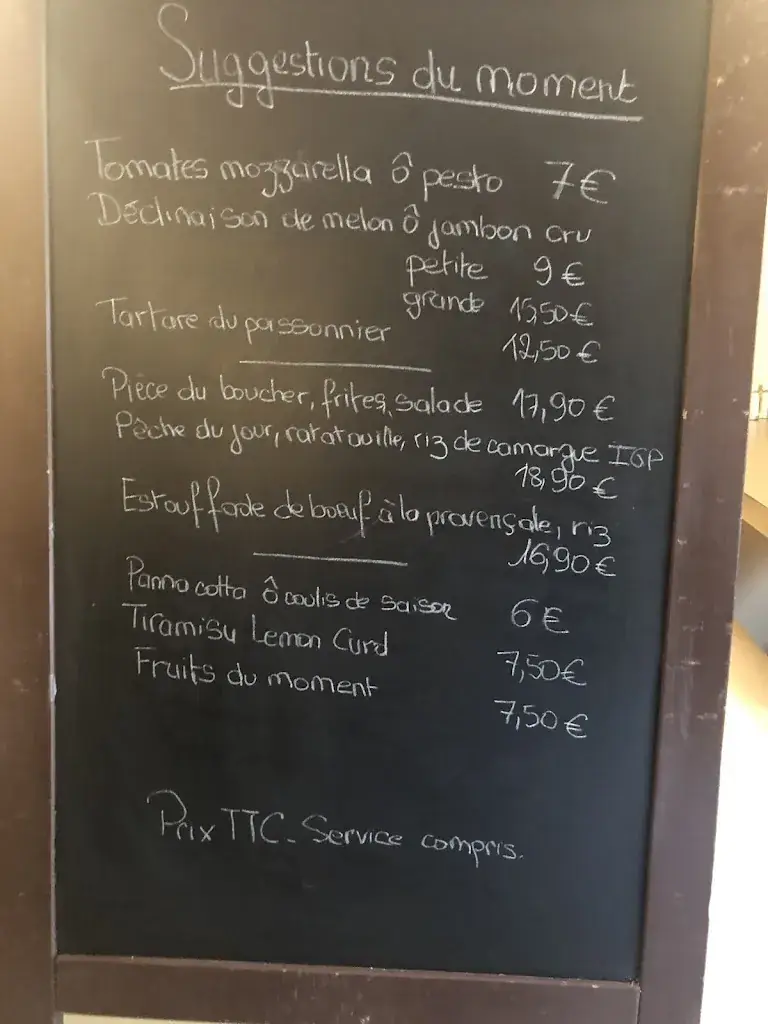 Suggestions du moment
Tomates mozzarella ô pesto 7€
Déclinaison de melon ô jambon cru
petite 9€
grande 15,50€
Tartare du poissonnier 12,50€
Pièce du boucher, frites, salade 17,90€
Pêche du jour, ratatouille, riz de camargue IGP
18,90€
Estouffade de boeuf à la provençale, riz
16,90€
Panna cotta ô coulis de saison 6€
Tiramisu Lemon Curd 7,50€
Fruits du moment 7,50€
Prix TTC - Service compris.